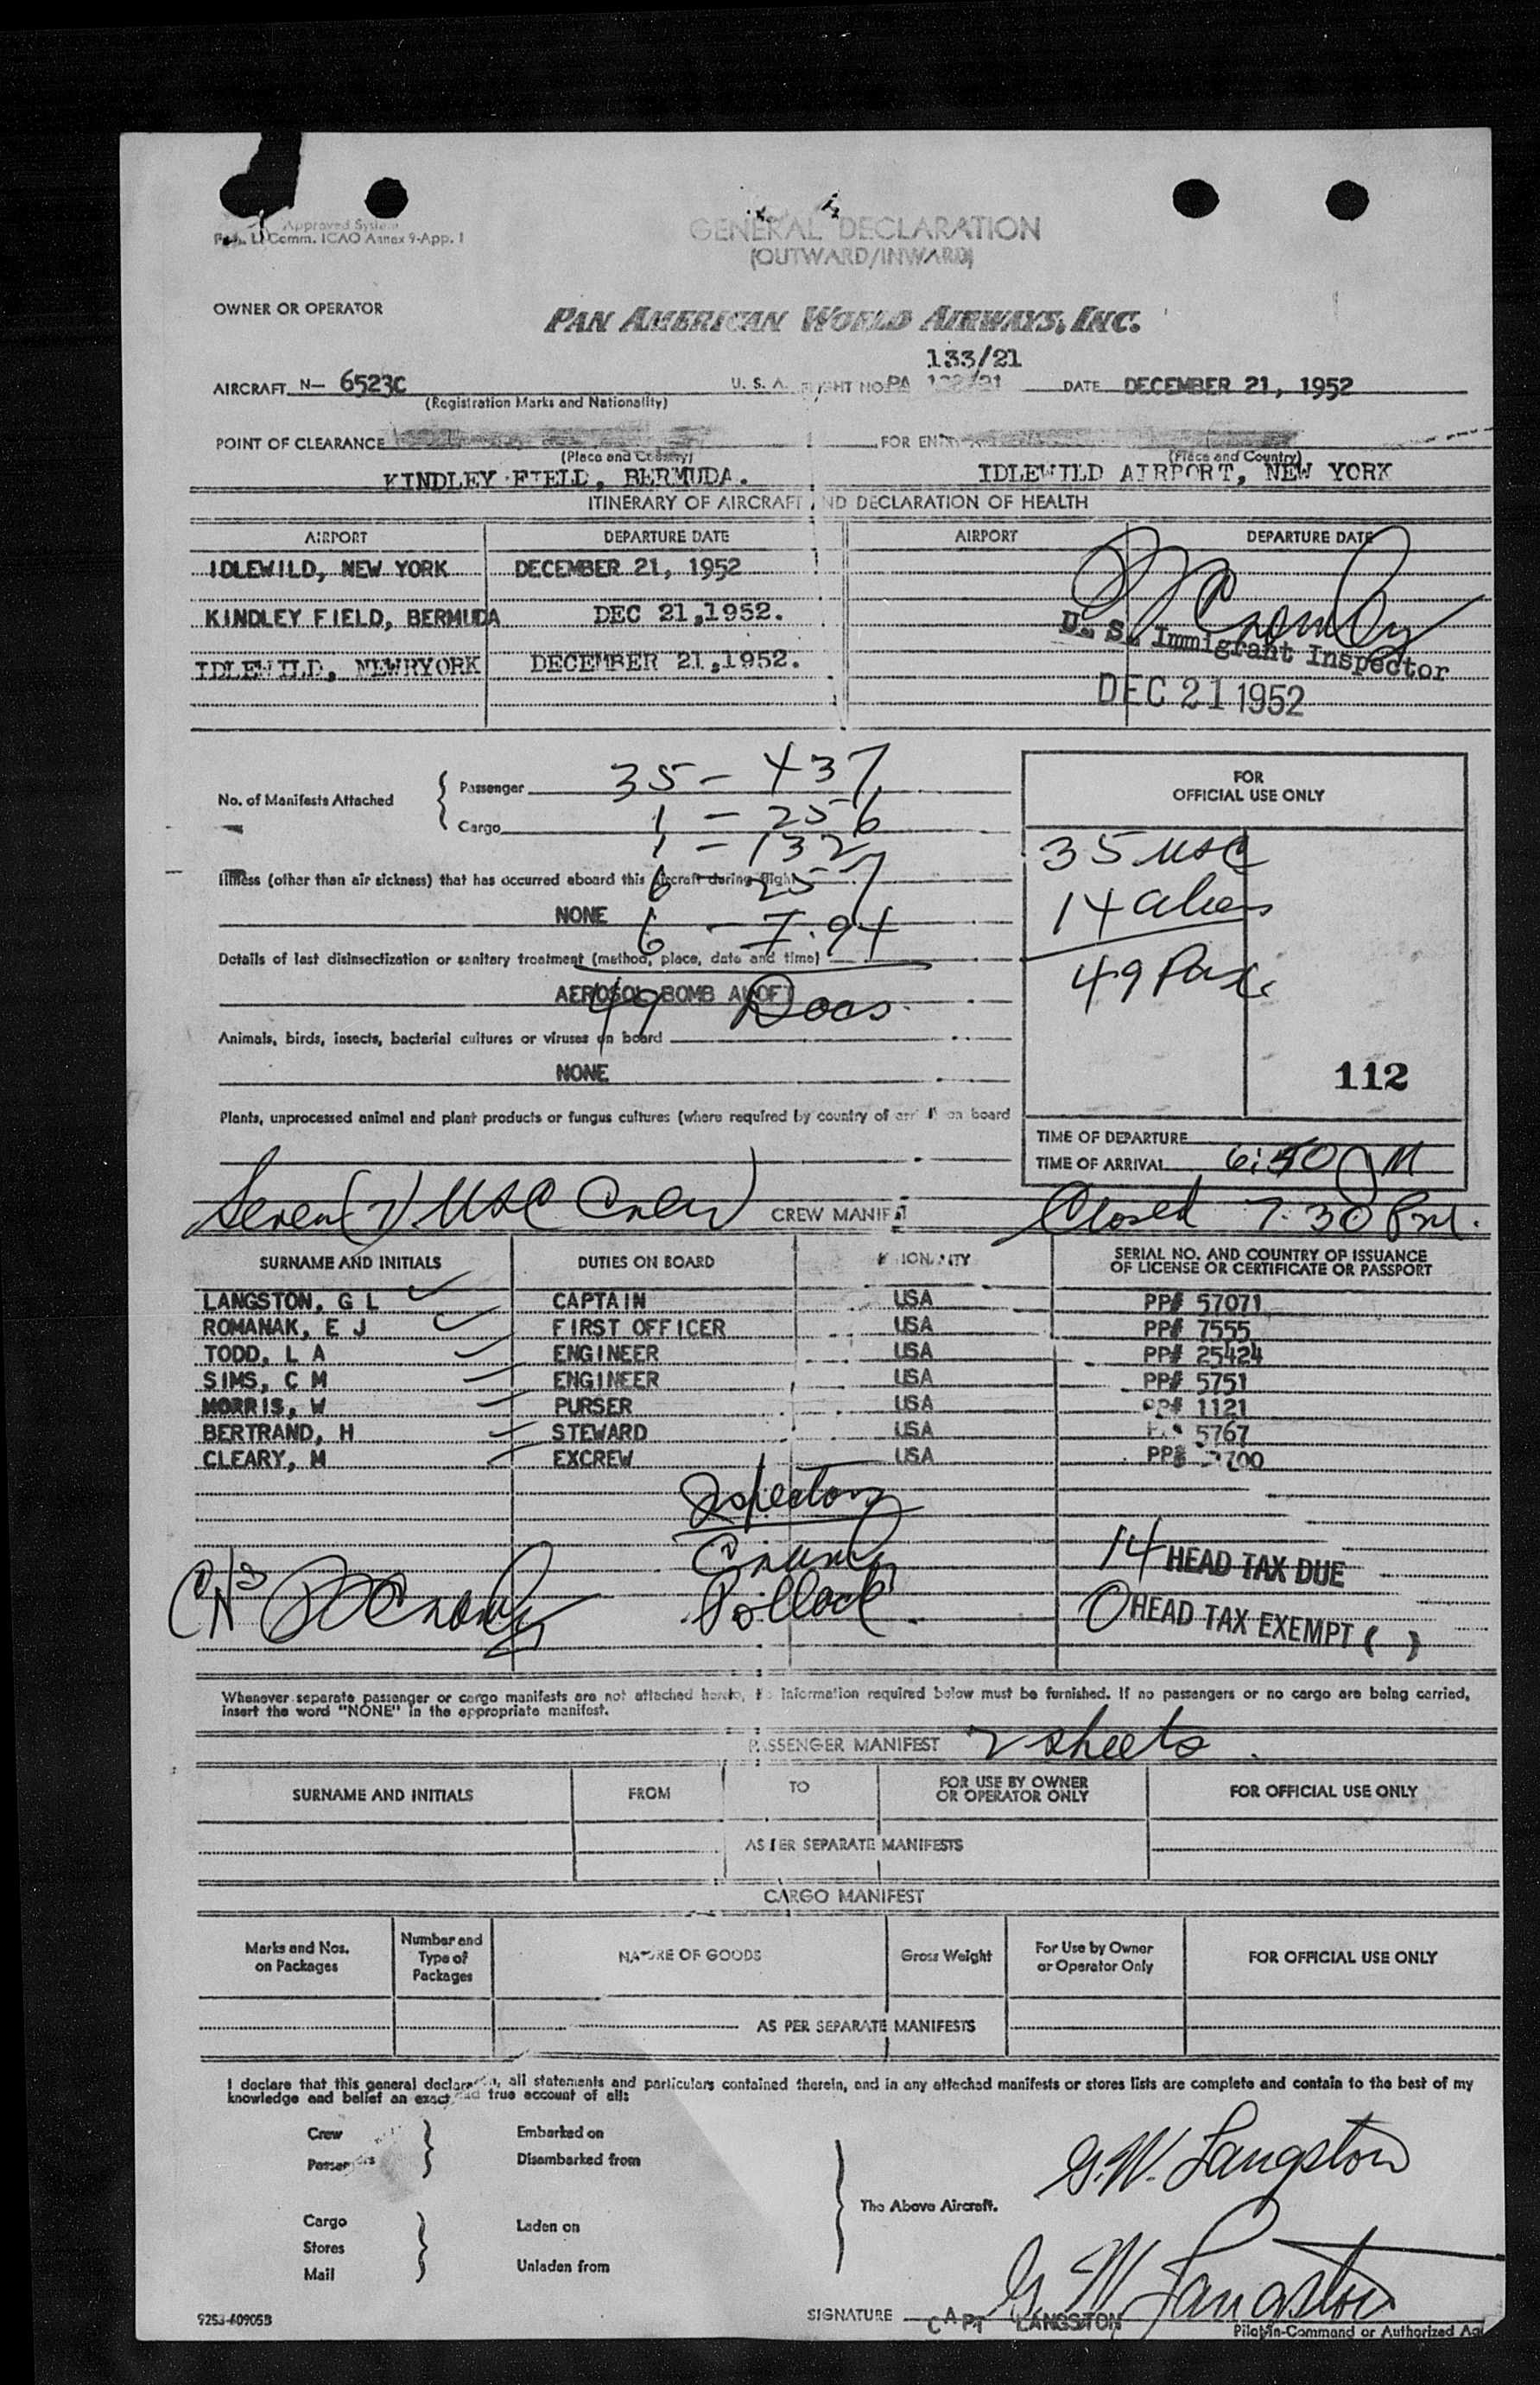 Approved System
Comm. ICAO Annex 9-App. 1
GENERAL DECLARATION
(OUTWARD/INWARD)
OWNER OR OPERATOR
PAN AMERICAN WORLD AIRWAYS, INC.
133/21
AIRCRAFT N- 6523C U. S. A. FLIGHT NO. PA DATE DECEMBER 21, 1952
(Registration Marks and Nationality)
POINT OF CLEARANCE FOR ENTRY
(Place and Country) (Place and Country)
KINDLEY FIELD, BERMUDA. IDLEWILD AIRPORT, NEW YORK
ITINERARY OF AIRCRAFT AND DECLARATION OF HEALTH
AIRPORT DEPARTURE DATE AIRPORT DEPARTURE DATE
IDLEWILD, NEW YORK DECEMBER 21, 1952
KINDLEY FIELD, BERMUDA DEC 21,1952.
U. S. Immigrant Inspector
IDLEWILD, NEWRYORK DECEMBER 21,1952.
DEC 21 1952
No. of Manifests Attached
Passenger 35 - 437
Cargo 1 - 256
1 - 132
FOR
OFFICIAL USE ONLY
35 USC
14 aliens
49 Pax
112
Illness (other than air sickness) that has occurred aboard this aircraft during flight
6 - 257
NONE
6 - 7.94
Details of last disinsectization or sanitary treatment (method, place, date and time)
AEROSOL BOMB ALOFT
49 Docs.
Animals, birds, insects, bacterial cultures or viruses on board
NONE
Plants, unprocessed animal and plant products or fungus cultures (where required by country of arr on board
TIME OF DEPARTURE
TIME OF ARRIVAL 6:40 PM
Seven (7) USC Crew CREW MANIF Closed 7:30 Pm.
SURNAME AND INITIALS DUTIES ON BOARD NATIONALITY SERIAL NO. AND COUNTRY OF ISSUANCE
OF LICENSE OR CERTIFICATE OR PASSPORT
LANGSTON, G L CAPTAIN USA PP# 57071
ROMANAK, E J FIRST OFFICER USA PP# 7555
TODD, L A ENGINEER USA PP# 25424
SIMS, C M ENGINEER USA PP# 5751
MORRIS, W PURSER USA PP# 1121
BERTRAND, H STEWARD USA 5767
CLEARY, M EXCREW USA PP# 700
Inspectors
14 HEAD TAX DUE
Pollock
0 HEAD TAX EXEMPT ( )
Whenever separate passenger or cargo manifests are not attached hereto, the information required below must be furnished. If no passengers or no cargo are being carried,
insert the word "NONE" in the appropriate manifest.
PASSENGER MANIFEST 2 sheets
SURNAME AND INITIALS FROM TO FOR USE BY OWNER
OR OPERATOR ONLY FOR OFFICIAL USE ONLY
AS PER SEPARATE MANIFESTS
CARGO MANIFEST
Marks and Nos.
on Packages
Number and
Type of
Packages
NATURE OF GOODS
Gross Weight
For Use by Owner
or Operator Only
FOR OFFICIAL USE ONLY
AS PER SEPARATE MANIFESTS
I declare that this general declaration, all statements and particulars contained therein, and in any attached manifests or stores lists are complete and contain to the best of my
knowledge and belief an exact and true account of all:
Crew Embarked on
Passengers Disembarked from
G.W. Langston
The Above Aircraft.
Cargo Laden on
Stores
Mail Unladen from
G W Langston
SIGNATURE CAPT LANGSTON
9253-40905B
Pilot-in-Command or Authorized Ag